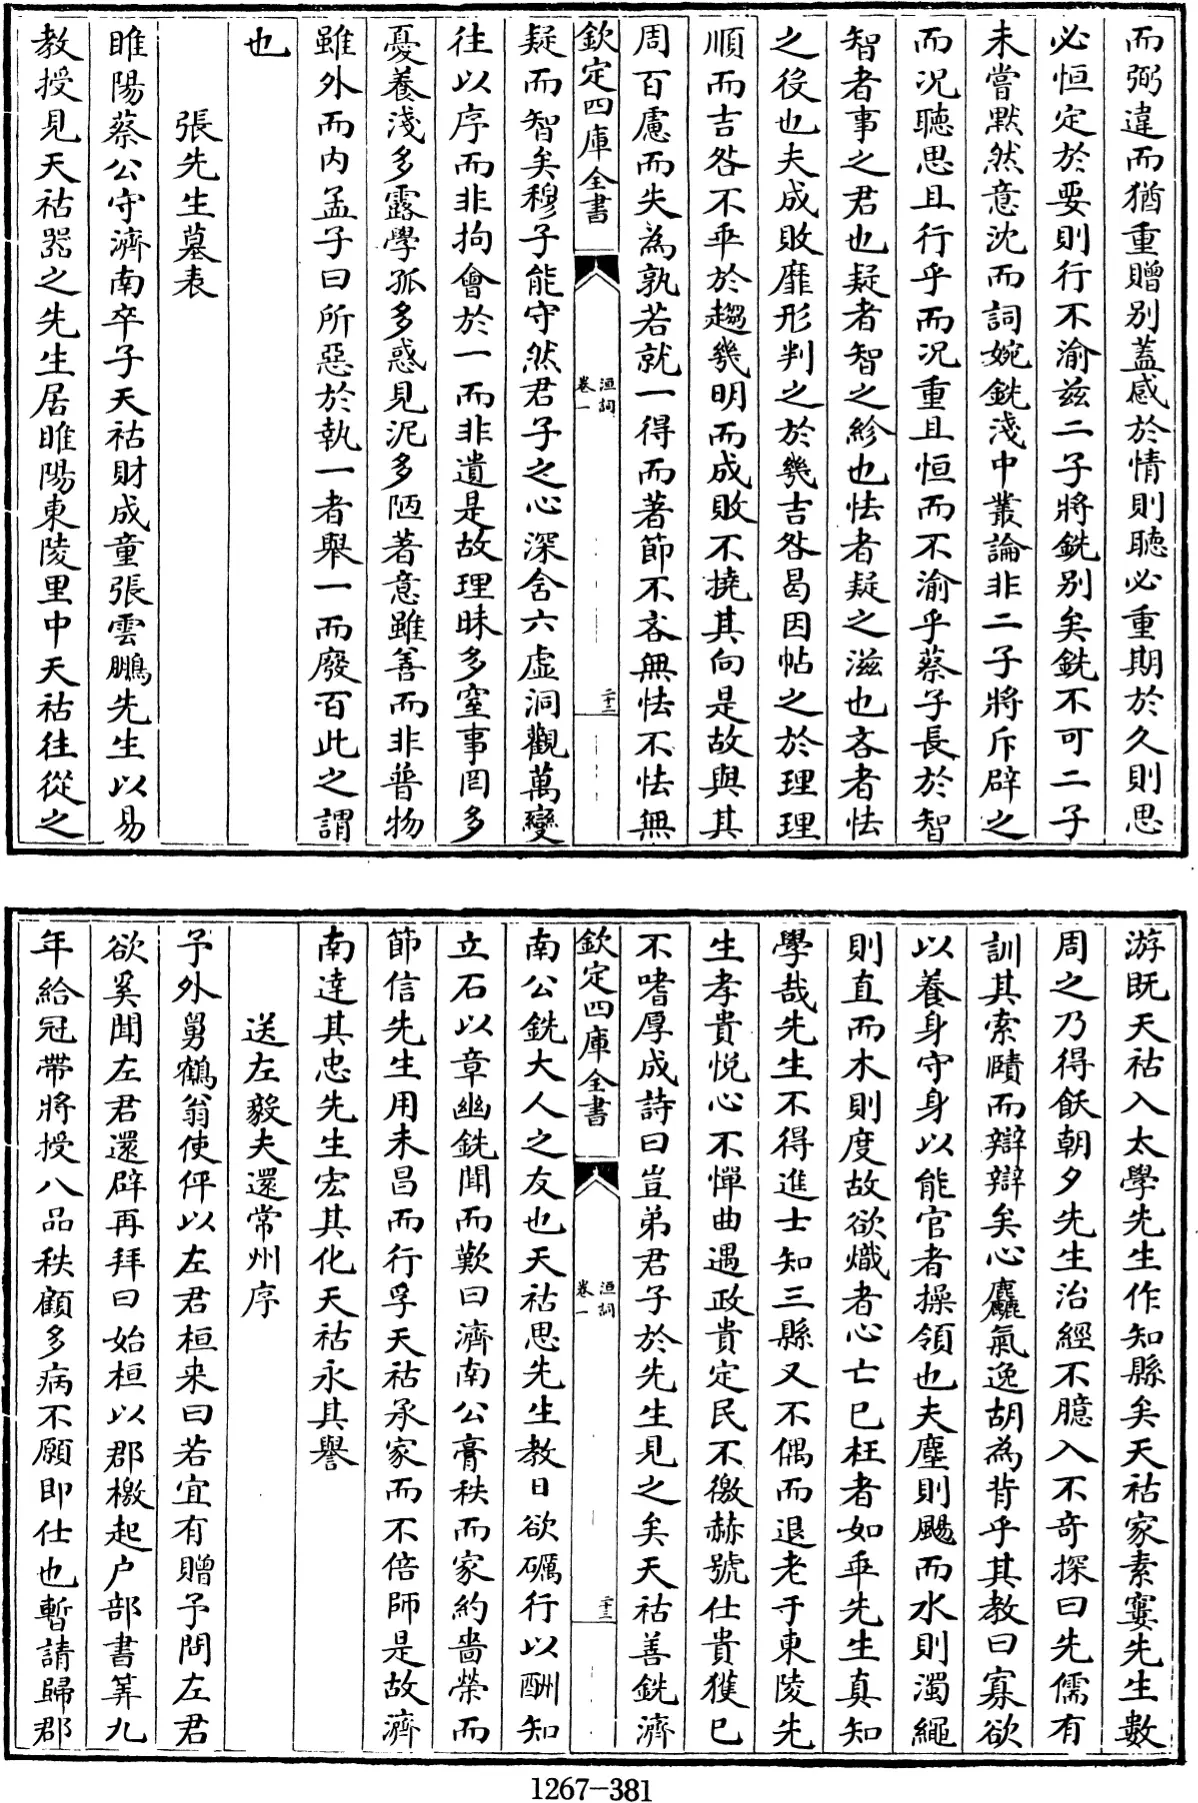 而弼違而猶重贈别蓋感於情則聽必重期於久則思
必恒定於要則行不渝兹二子將銑别矣銑不可二子
未嘗黙然意沈而詞婉銑淺中叢論非二子將斥辟之
而況聽思且行乎而況重且恒而不渝乎蔡子長於智
智者事之君也疑者智之紾也怯者疑之滋也吝者怯
之役也夫成敗靡形判之於幾吉咎曷因帖之於理理
順而吉咎不乖於趨幾明而成敗不撓其向是故與其
周百慮而失為孰若就一得而著節不吝無怯不怯無
欽定四庫全書
洹詞
卷一
二十二
疑而智矣穆子能守然君子之心深舍六虚洞觀萬變
往以序而非拘會於一而非遺是故理昧多窒事罔多
憂養淺多露學孤多惑見泥多陋著意雖善而非普物
雖外而内孟子曰所惡於執一者舉一而廢百此之謂
也
張先生墓表
睢陽蔡公守濟南卒子天祜財成童張雲鵬先生以易
教授見天祜器之先生居睢陽東陵里中天祜往從之
游既天祜入太學先生作知縣矣天祜家素寠先生數
周之乃得飫朝夕先生治經不臆入不奇探曰先儒有
訓其索賾而辯辯矣心麤氣逸胡為背乎其教曰寡欲
以養身守身以能官者操領也夫塵則颺而水則濁繩
則直而木則度故欲熾者心亡已枉者如乖先生真知
學哉先生不得進士知三縣又不偶而退老于東陵先
生孝貴悦心不憚曲遇政貴定民不徼赫號仕貴獲已
不嗜厚成詩曰豈弟君子於先生見之矣天祜善銑濟
欽定四庫全書
洹詞
卷一
二十三
南公銑大人之友也天祜思先生教日欲礪行以酬知
立石以章幽銑聞而歎曰濟南公膏秩而家約嗇榮而
節信先生用未昌而行孚天祜承家而不倍師是故濟
南達其忠先生宏其化天祜永其譽
送左毅夫還常州序
予外舅鶴翁使伻以左君桓来曰若宜有贈予問左君
欲奚聞左君還辟再拜曰始桓以郡檄起户部書筭九
年給冠帶將授八品秩顧多病不願即仕也暫請歸郡
1267-381